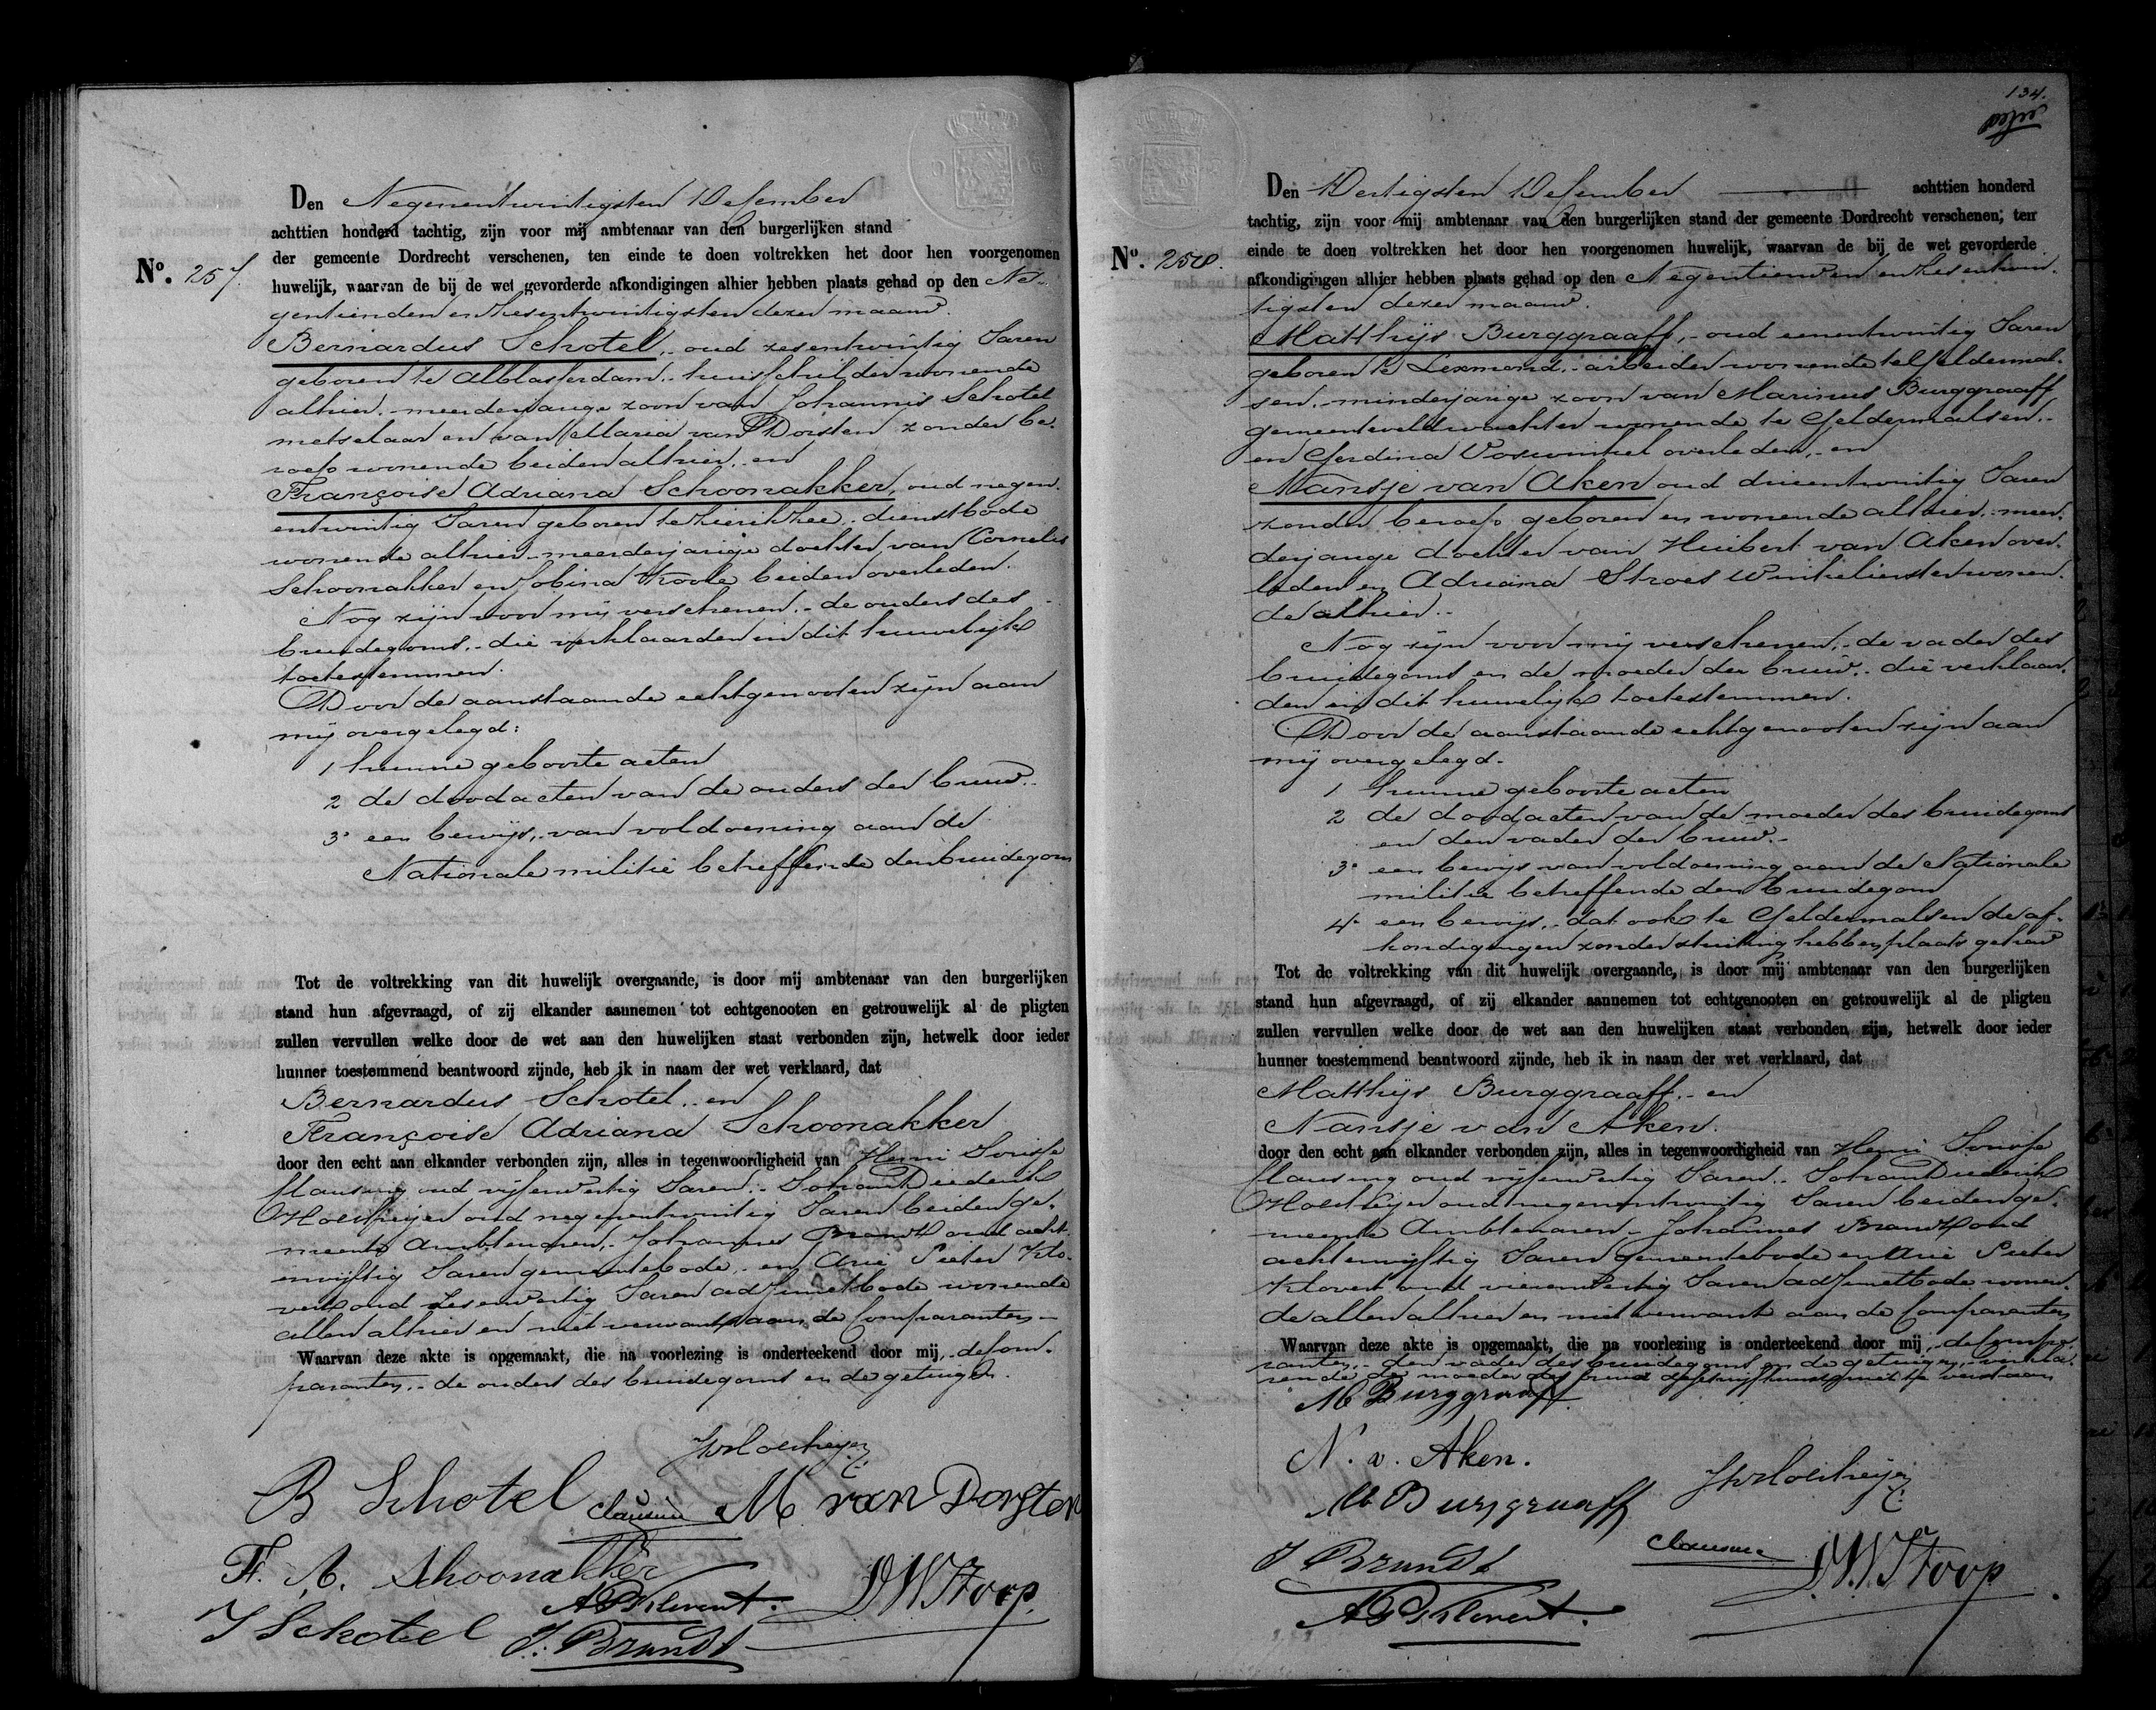 Den Negenentwintigsten December
achttien honderd tachtig, zijn voor mij ambtenaar van den burgerlijken stand
der gemeente Dordrecht verschenen, ten einde te doen voltrekken het door hen voorgenomen
No. 257.
huwelijk, waarvan de bij de wet gevorderde afkondigingen alhier hebben plaats gehad op den Ne-
gentienden en Zesentwintigsten dezer maand.
Bernardus Schotel, oud zesentwintig Jaren
geboren te Alblasserdam, huisschilder wonende
alhier, meerderjarige zoon van Johannis Schotel
metselaar en van Maria van Dorsten zonder be-
roep wonende beiden alhier, en
Françoise Adriana Schoonakker, oud negen-
entwintig Jaren geboren te Zierikzee, dienstbode
wonende alhier, meerderjarige dochter van Cornelis
Schoonakker en Jobina Koole beiden overleden.
Nog zijn voor mij verschenen, de ouders des
bruidegoms, die verklaarden in dit huwelijk
toetestemmen.
Door de aanstaande echtgenooten zijn aan
mij overgelegd:
1 hunne geboorte acten
2 de doodacten van de ouders der bruid.
3° een bewijs, van voldoening aan de
Nationale militie betreffende den bruidegom
Tot de voltrekking van dit huwelijk overgaande, is door mij ambtenaar van den burgerlijken
stand hun afgevraagd, of zij elkander aannemen tot echtgenooten en getrouwelijk al de pligten
zullen vervullen welke door de wet aan den huwelijken staat verbonden zijn, hetwelk door ieder
hunner toestemmend beantwoord zijnde, heb ik in naam der wet verklaard, dat
Bernardus Schotel, en
Françoise Adriana Schoonakker
door den echt aan elkander verbonden zijn, alles in tegenwoordigheid van Henri
Clausing oud vijfenveertig Jaren, Johan Diederik
oud negenentwintig Jaren beiden ge-
meente Ambtenaren, Johannes Brandt oud acht-
envijftig Jaren gemeentebode, en Arie Pieter Klo-
vert oud zesenveertig Jaren adjunctbode wonende
allen alhier en niet verwant aan de Comparanten
Waarvan deze akte is opgemaakt, die na voorlezing is onderteekend door mij, de Com-
paranten, de ouders des bruidegoms en de getuigen.
B Schotel Clausing M van Dorsten
F. A. Schoonakker
A P Klovert. D W Stoop
J Schotel J. Brandt
134.
Den Dertigsten December achttien honderd
tachtig, zijn voor mij ambtenaar van den burgerlijken stand der gemeente Dordrecht verschenen, ten
einde te doen voltrekken het door hen voorgenomen huwelijk, waarvan de bij de wet gevorderde
No. 258.
afkondigingen alhier hebben plaats gehad op den Negentienden en Zesentwin-
tigsten dezer maand.
Matthijs Burggraaff, oud eenentwintig Jaren
geboren te Lexmond, arbeider wonende te Geldermal-
sen, minderjarige zoon van Marinus Burggraaff
gemeenteveldwachter wonende te Geldermalsen,
en Gerdina Voswinkel overleden, en
Nansje van Aken oud drieentwintig Jaren
zonder beroep geboren en wonende alhier, meer-
derjarige dochter van Huibert van Aken over-
leden en Adriana Stroes winkelierster wonen-
de alhier.
Nog zijn voor mij verschenen, de vader des
bruidegoms en de moeder der bruid, die verklaar-
den in dit huwelijk toetestemmen.
Door de aanstaande echtgenooten zijn aan
mij overgelegd.
1 hunne geboorte acten
2 de doodacten van de moeder des bruidegoms
en den vader der bruid.
3° een bewijs van voldoening aan de Nationale
militie betreffende den bruidegom
4° een bewijs, dat ook te Geldermalsen de af-
kondigingen zonder stuiting hebben plaats gehad
Tot de voltrekking van dit huwelijk overgaande, is door mij ambtenaar van den burgerlijken
stand hun afgevraagd, of zij elkander aannemen tot echtgenooten en getrouwelijk al de pligten
zullen vervullen welke door de wet aan den huwelijken staat verbonden zijn, hetwelk door ieder
hunner toestemmend beantwoord zijnde, heb ik in naam der wet verklaard, dat
Matthijs Burggraaff, en
Nansje van Aken.
door den echt aan elkander verbonden zijn, alles in tegenwoordigheid van Henri
Clausing oud vijfenveertig Jaren, Johan Diederik
oud negenentwintig Jaren beiden ge-
meente Ambtenaren, Johannes Brandt oud
achtenvijftig Jaren gemeentebode en Arie Pieter
Klovert oud vierenveertig Jaren adjunctbode wonen-
de allen alhier en niet verwant aan de Comparanten
Waarvan deze akte is opgemaakt, die na voorlezing is onderteekend door mij, de Compa-
ranten, den vader des bruidegoms en de getuigen, verkla-
rende de moeder der bruid de schrijfkunst niet te verstaan
M Burggraaff
N. v. Aken.
M Burggraaff
J Brandt Clausing D. W. Stoop
A P Klovert.